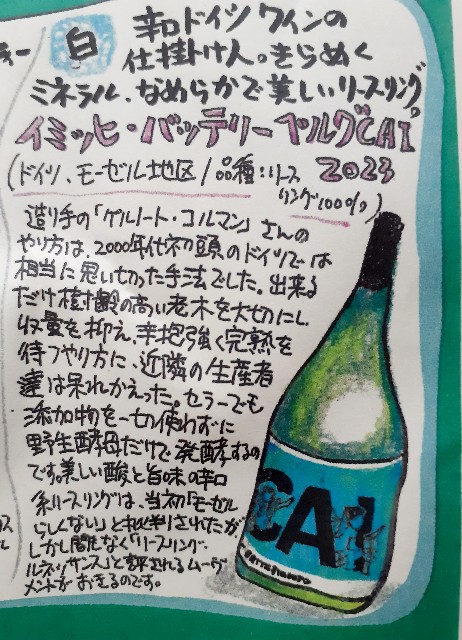 白
辛口ドイツワインの
仕掛け人。きらめく
ミネラル、なめらかで美しいリースリング。
イミッヒ・バッテリーベルグCAI
(ドイツ、モーゼル地区/品種:リース
リング100%)
2023
造り手の「ゲルノート・コルマン」さんの
やり方は、2000年代初頭のドイツでは
相当に思い切った手法でした。出来る
だけ樹齢の高い老木を大切にし
収量を抑え、辛抱強く完熟を
待つやり方に、近隣の生産者
達は呆れかえった。セラーでも
添加物を一切使わずに
野生酵母だけで発酵するの
です。美しい酸と旨味の辛口
系リースリングは、当初「モーゼル
らしくない」と批判されたが、
しかし間もなく「リースリング・
ルネッサンス」と評されるムーヴ
メントがおきるのです。
CAI